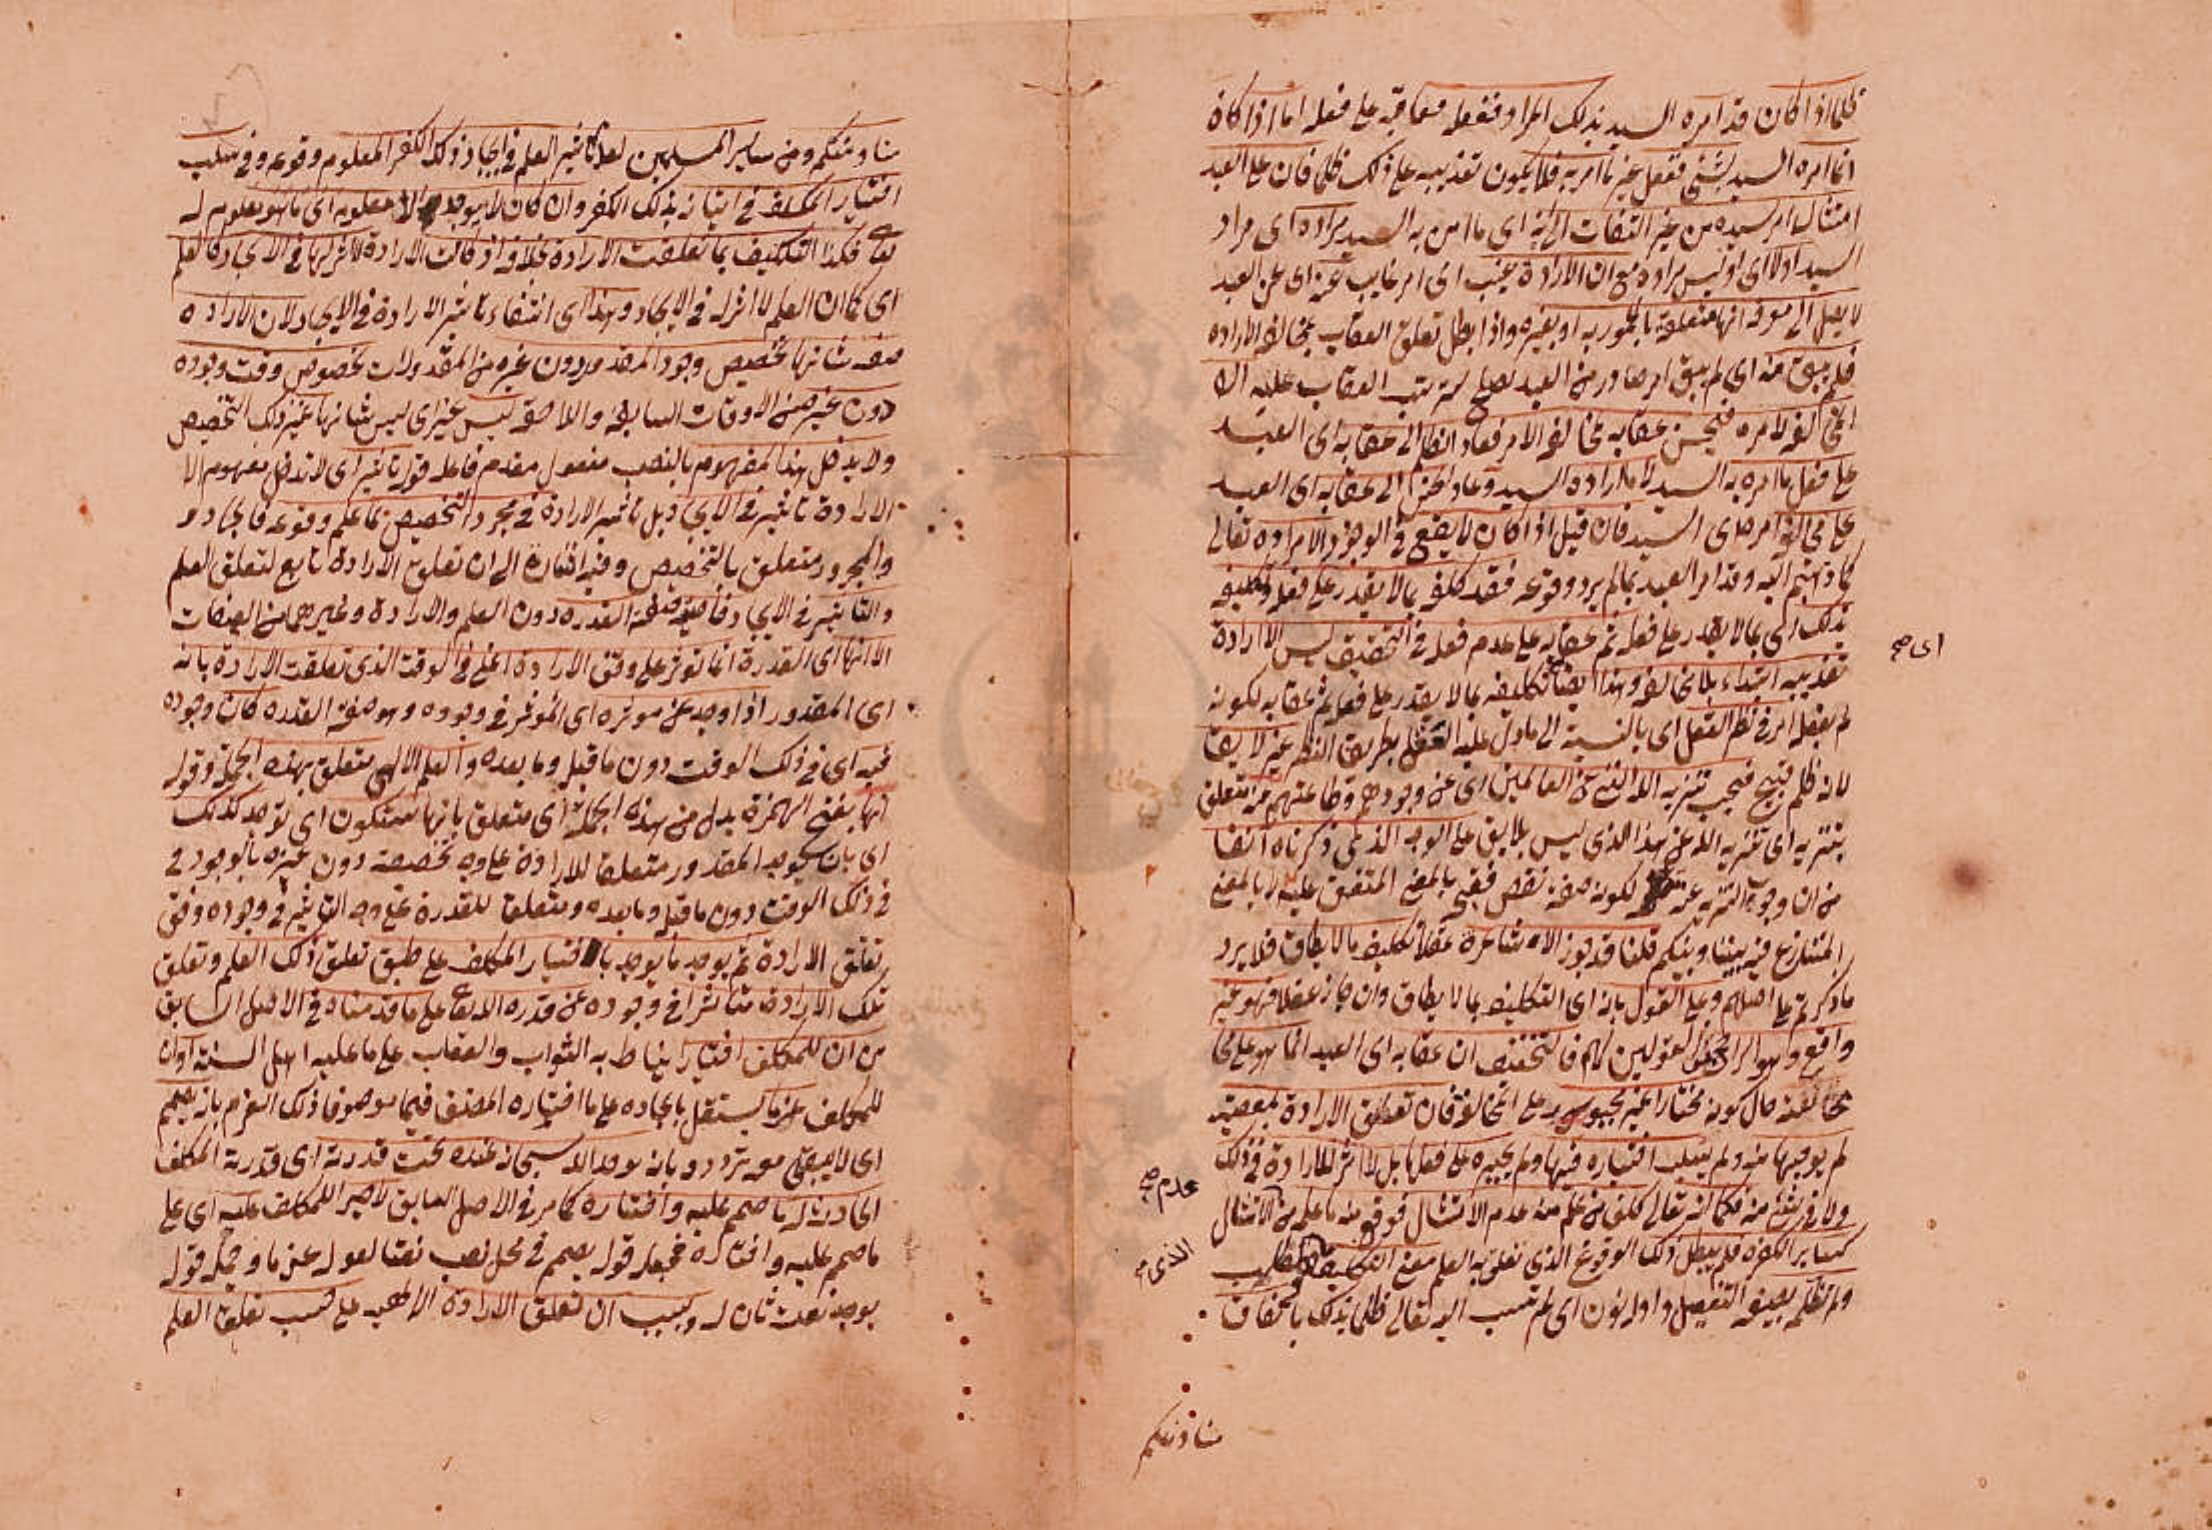 ظلما اذا كان قد امره السيد بذلك المراد ففعله فعاقبه على فعله اما اذا كان
انما امره السيد بشيء ففعل غير ما امر به فلا يكون تعذيبه على ذلك ظلما فان على العبد
امتثال امر سيده من غير التفات الى انه اى ما امر به السيد مراده اى مراد
السيد اولا اى او ليس مراده مع ان الارادة غيب اى امر غايب عنه اى عن العبد
لا يصل الى معرفة انها متعلقة بالمأمور به او بغيره واذا بطل تعلق العقاب بمخالفة الارادة
فلم يبق منه اى لم يبق امر صادر من العبد يصلح لترتب العقاب عليه الا
المخالفة لامره فيحسن عقابه لمخالفة الامر فعاد الظلم الى عقابه اى العبد
على فعل ما امره به السيد لا ما اراده السيد وعاد الحسن الى عقابه اى العبد
على مخالفة امر السيد فان قيل اذا كان لا يقع فى الوجود الا مراده تعالى
كما ذهبتم اليه وقد امر العبد بما لم يرد وقوعه فقد كلفه بما لا يقدر على فعله وتكليفه
بذلك اى بما لا يقدر على فعله ثم عقابه على عدم فعله فى التحقيق ليس الا ارادة
تعذيبه ابتداء بلا مخالفة وهذا ايضا تكليفه بما لا يقدر على فعله ثم عقابه لكونه
لم يفعله امر فى نظر العقل اى بالنسبة الى ما دل عليه العقل بطريق النظر غير لايق
لانه ظلم قبيح فيجب تنزيه الله الغنى عن العالمين اى عن وجودهم وطاعتهم عنه متعلق
بتنزيه اى تنزيه الله عن هذا الذى ليس بلايق على الوجه الذى ذكرناه آنفا
من ان وجوب التنزيه عنه لكونه صفة نقص فقبح بالمعنى المتفق عليه لا بالمعنى
المتنازع فيه بيننا وبينكم قلنا قد جوز الاشاعرة عقلا تكليف ما لا يطاق فلا يرد
ما ذكرتم على اصلهم وعلى القول بانه اى التكليف بما لا يطاق وان جاز عقلا فهو غير
واقع وهو الراجح من القولين لهم فالتحقيق ان عقابه اى العبد انما هو على مخا
مخالفته حال كونه مختارا غير مجبور على المخالفة فان تعلق الارادة بمعصية
لم يوجبها منه ولم يسلب اختياره فيها ولم يجبره على فعلها بل لا اثر للارادة فى ذلك
ولا فى شيء منه فكما انه تعالى كلف من علم منه عدم الامتثال فوقع منه ما علم من الامتثال
كساير الكفرة فلم يبطل ذلك الوقوع الذى تعلق به العلم معنى التكليف
ولم تظلمه بصيغة التفعيل واوله نون اى لم تنسب اليه تعالى ظلما بذلك باتفاق
اى صح
عدم صح
الذى صح
منا ومنكم
منا ومنكم ومن ساير المسلمين لعدم تاثير العلم فى ايجاد ذلك الكفر المعلوم وقوعه وفى سلب
اختيار المكلف فى اتيانه بذلك الكفر وان كان لا يوجد الا معلومه اى ما هو معلوم له
تعالى فكذا التكليف بما تعلقت الارادة بخلافه اذ كانت الارادة لا اثر لها فى الايجاد كالعلم
اى كما ان العلم لا اثر له فى الايجاد وهذا اى انتفاء تاثير الارادة فى الايجاد لان الارادة
صفة شانها تخصيص وجود المقدور دون غيره من المقدورات بخصوص وقت وجوده
دون غيره من الاوقات السابقة واللاحقة ليس غير اى ليس شانها غير ذلك التخصيص
ولا يدخل هذا المفهوم بالنصب مفعول مقدم فاعله قوله تاثير اى لا تدخل مفهوم الا
الارادة تاثير فى الايجاد بل تاثير الارادة فى مجرد التخصيص لما علم وقوعه فالجار و
والمجرور متعلق بالتخصيص وفيه اشارة الى ان تعلق الارادة تابع لتعلق العلم
والتاثير فى الايجاد خاصية صفة القدرة دون العلم والارادة وغيرهما من الصفات
الا انها اى القدرة انما توثر على وفق الارادة اعنى فى الوقت الذى تعلقت الارادة بانه
اى المقدور اذا وجد عن موثره اى الموثر فى وجوده وهو صفة القدرة كان وجوده
فيه اى فى ذلك الوقت دون ما قبله وما بعده والعلم الالهى متعلق بهذه الجملة وقوله
انها بفتح الهمزة بدل من هذه الجملة اى متعلق بانها ستكون اى توجد كذلك
اى بان سيوجد المقدور متعلقا للارادة على وجه تخصيصه دون غيره بالوجود فى
فى ذلك الوقت دون ما قبله وما بعده ومتعلقا للقدرة على وجه التاثير فى وجوده وفق
تعلق الارادة ثم يوجد ما يوجد باختيار المكلف على طبق تعلق ذلك العلم وتعلق
تلك الارادة متاثرا فى وجوده عن قدرة الله تعالى على ما قدمناه فى الاصل السابق
من ان للمكلف اختيارا يناط به الثواب والعقاب على ما عليه اهل السنة او ان
للمكلف عزما يستقل بايجاده على ما اختاره المصنف فيما موصوفا ذلك العزم بانه يصمم
اى لا يبقى معه تردد وبانه يوجد الله سبحانه عنده تحت قدرته اى قدرة المكلف
الحادثة ما صمم عليه واختاره كما مر فى الاصل السابق لا جبر للمكلف عليه اى على
ما صمم عليه واختاره فجملة قوله يصمم فى محل نصب نعتا لقوله عزما وجملة قوله
يوجد نعت ثان له وبسبب ان تعلق الارادة الالهية على حسب تعلق العلم